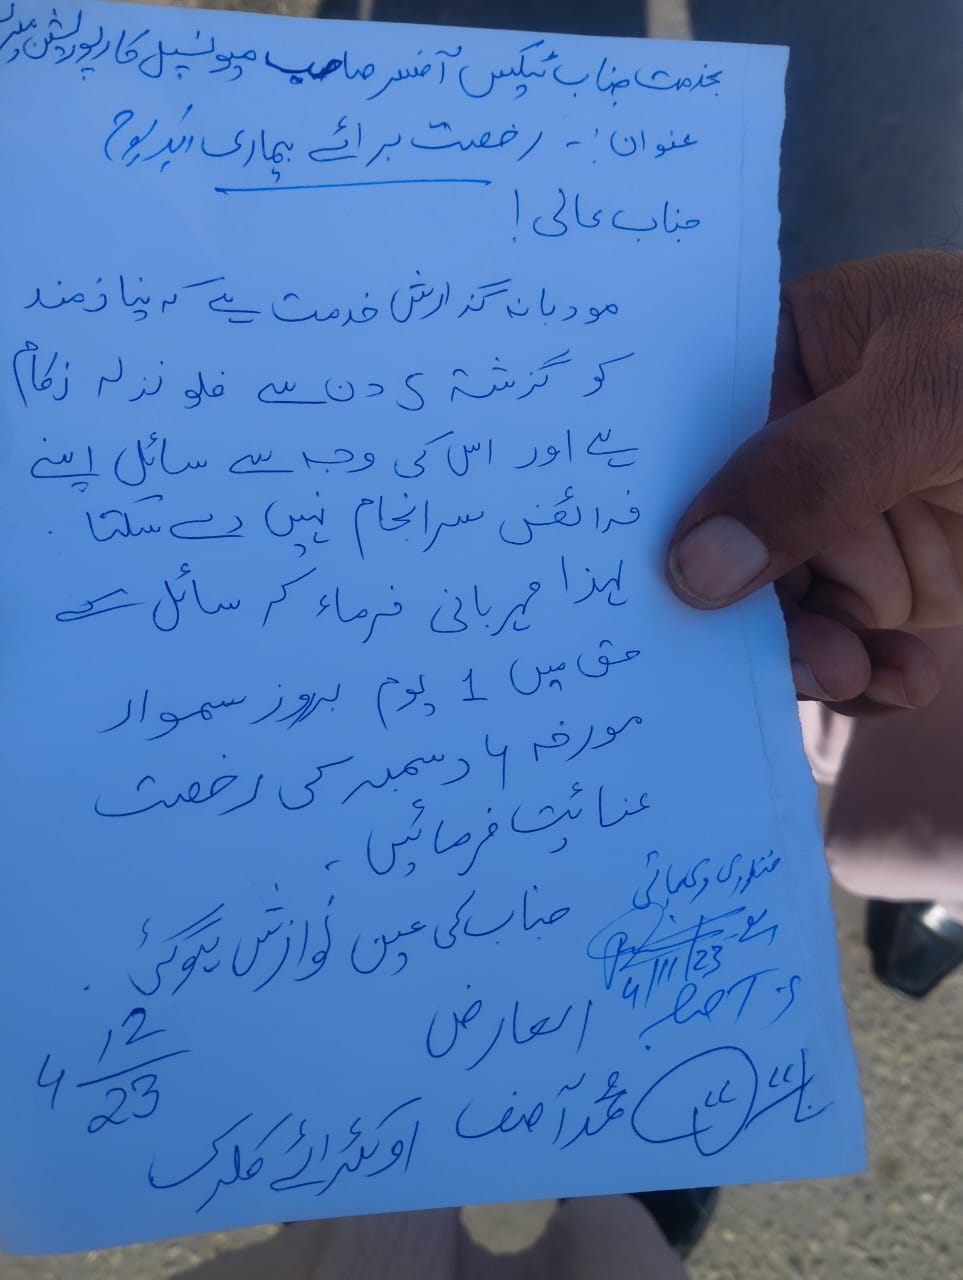 بخدمت جناب ٹیکس آفسر صاحب میونسپل کارپوریشن
عنوان :- رخصت برائے بیماری ایک یوم
جناب عالی !
مودبانہ گذارش خدمت ہے کہ نیازمند
کو گزشتہ 5 دن سے فلو نزلہ زکام
ہے اور اس کی وجہ سے سائل اپنے
فرائض سرانجام نہیں دے سکتا .
لہذا مہربانی فرماء کر سائل کے
حق میں 1 یوم بروز سموار
مورخہ 4 دسمبر کی رخصت
عنائیت فرمائیں ۔
جناب کی عین نوازش ہوگئی .
منظوری دی جاتی
ہے
4/11/23
العارض
4 12/23
محمد آصف
اوکٹرائے کلرک